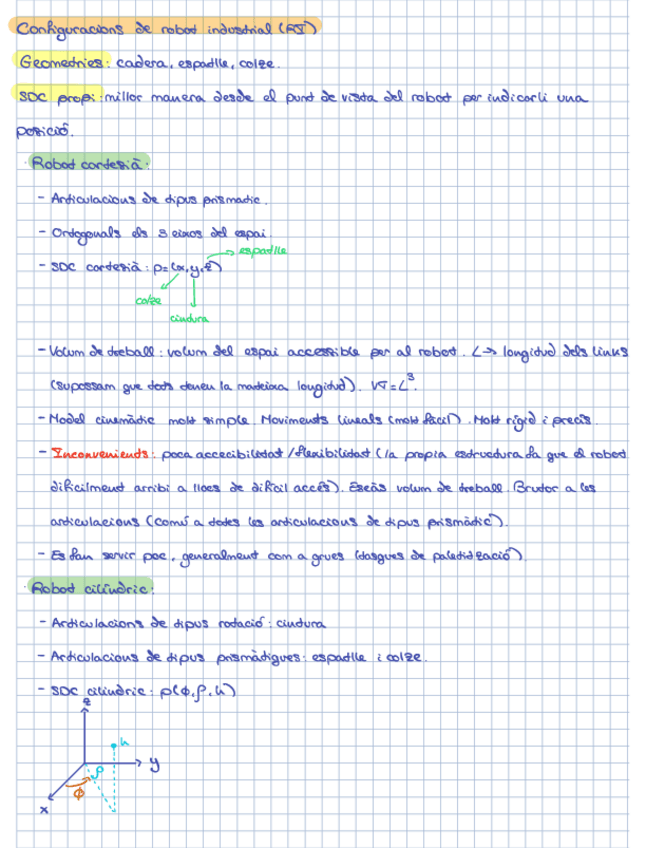 Configuracions de robot industrial (RI)
Geometries: cadera, espatlle, colze.
SDC propi: millor manera desde el punt de vista del robot per indicarli una
posició.
· Robot cartesià:
- Articulacions de tipus prismatic.
- Ortogonals els 3 eixos del espai.
- SDC cartesià: p=(x,y,z)
espatlle
colze
cintura
- Volum de treball: volum del espai accessible per al robot. L→ longitud dels links
(suposam que tots tenen la mateixa longitud). V=L³.
- Model cinemàtic molt simple Moviments lineals (molt fàcil). Molt rígid i precís.
- Inconvenients: poca accecibilitat/flexibilitat (la propia estructura fa que el robot
dificilment arribi a llocs de difícil accés). Escàs volum de treball. Brutor a les
articulacions (comú a totes les articulacions de tipus prismàtic).
- Es fan servir poc, generalment com a grues (tasques de paletització).
· Robot cilíndric:
- Articulacions de tipus rotació: cintura
- Articulacions de tipus prismàtiques: espatlle i colze.
- SDC cilíndric: p(ϕ,ρ,h)
z
h
y
ρ
ϕ
x